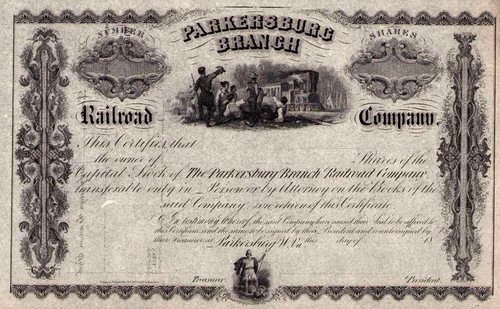 PARKERSBURG
BRANCH
NUMBER
SHARES
Railroad Company.
This Certifies that
the owner of Shares of the
Capital Stock of The Parkersburg Branch Railroad Company
transferable only in Person or by Attorney on the Books of the
said Company, on return of this Certificate
In testimony Whereof, the said Company have caused their Seal to be affixed to
this Certificate and the same to be signed by their President and countersigned by
their Treasurer at Parkersburg W. Va. this day of 18
Treasurer President